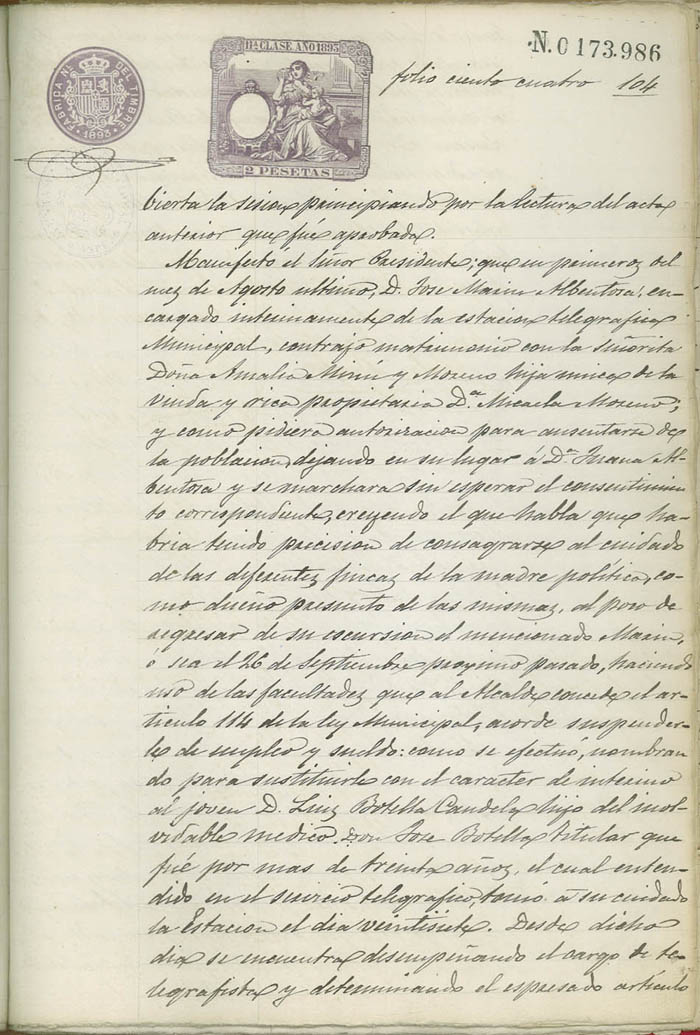 11ª CLASE AÑO 1893
N. 0 173.986
FABRICA Nˡ. DEL TIMBRE
1893
2 PESETAS
folio ciento cuatro 104
bierta la sesion principiando por la lectura del acta
anterior que fué aprobada.
Manifestó el Señor Presidente; que en primeros del
mez de Agosto ultimo, D. Jose Marin Albentosa, en-
cargado interinamente de la estacion telegrafica
Municipal, contrajo matrimonio con la Señorita
Doña Amalia Mira y Moreno hija unica de la
viuda y rica propietaria Dª Micaela Moreno;
y como pidiera autorizacion para ausentarse de
la poblacion, dejando en su lugar á Dª Juana Al-
bentosa y se marchara sin esperar el consentimien
to correspondiente, creyendo el que habla que ha-
bria tenido precision de consagrarse al cuidado
de las diferentez fincaz de la madre politica, co-
mo dueño presunto de las mismaz, al poco de
regresar de su escursion el mencionado Marin,
ó sea el 26 de Septiembre proximo pasado, haciendo
uso de las facultadez que al Alcalde concede el ar-
ticulo 114 de la ley Municipal, acordé suspender-
le de empleo y sueldo: como se efectuo, nombran
do para sustituirle con el caracter de interino
al joven D. Luiz Botella Candela, hijo del inol-
vidable medico Don Jose Botella, titular que
fué por mas de treinta añoz, el cual enten-
dido en el servicio telegrafico, tomó á su cuidado
la Estacion el dia veintisiete. Desde dicho
dia se encuentra desempeñando el cargo de te-
legrafista y determinando el espresado articulo